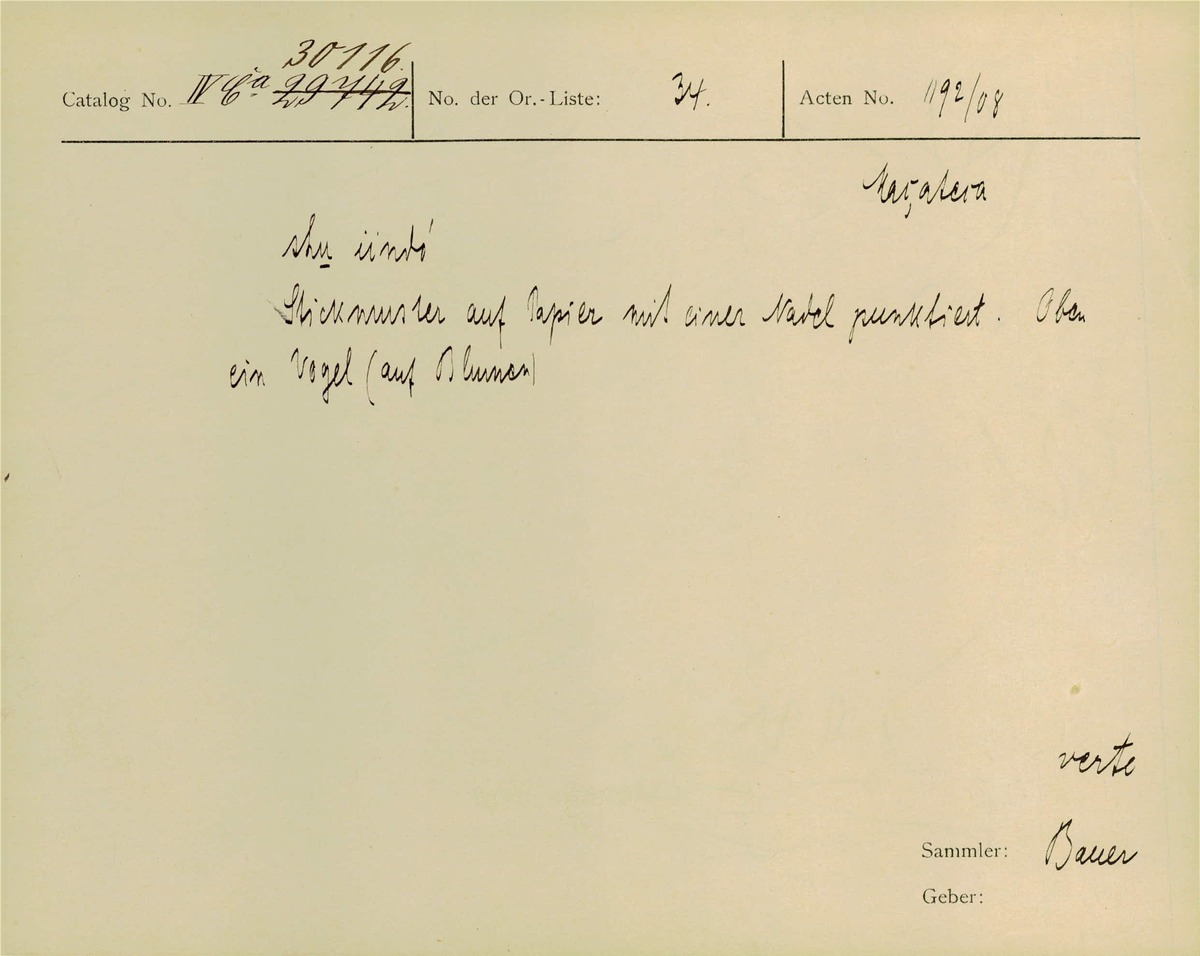 30116.
Catalog No. IV Ca 29742. No. der Or.-Liste: 34. Acten No. 1192/08
Maçateca
shu̱ iindó
Stickmuster auf Papier mit einer Nadel punktiert. Oben
ein Vogel (auf Blumen)
verte
Sammler: Bauer
Geber: